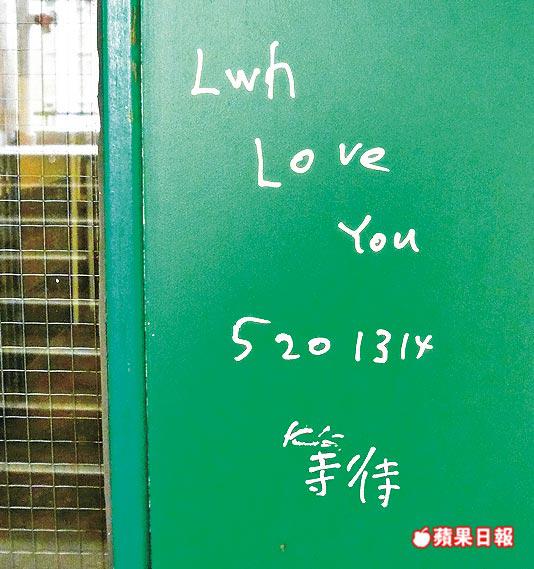 Lwh
Love
You
520 1314
等待
蘋果日報